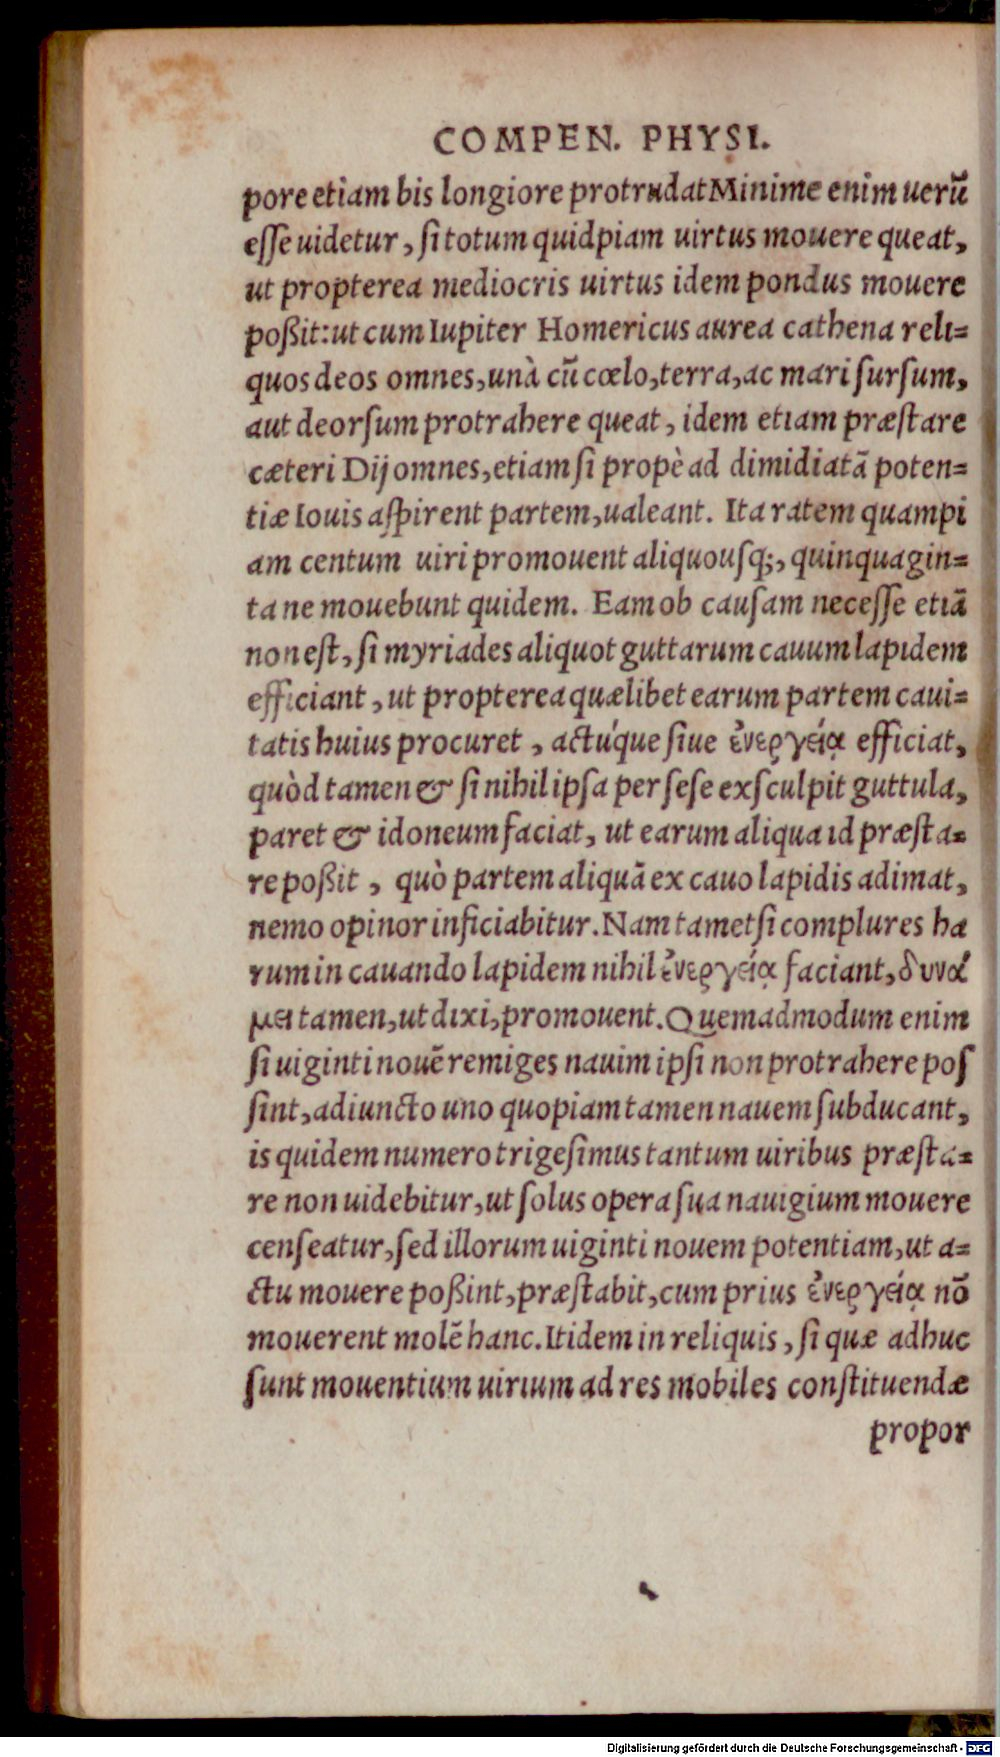 COMPEN. PHYSI.
pore etiam bis longiore protrudat Minime enim uerũ
esse uidetur, si totum quidpiam uirtus mouere queat,
ut propterea mediocris uirtus idem pondus mouere
poßit: ut cum Iupiter Homericus aurea cathena reli=
quos deos omnes, unà cũ cœlo, terra, ac mari sursum,
aut deorsum protrahere queat, idem etiam præstare
cæteri Dij omnes, etiam si propè ad dimidiatã poten=
tiæ Iouis aspirent partem, ualeant. Ita ratem quampi
am centum uiri promouent aliquousq;, quinquagin=
ta ne mouebunt quidem. Eam ob causam necesse etiã
non est, si myriades aliquot guttarum cauum lapidem
efficiant, ut propterea quælibet earum partem caui=
tatis huius procuret, actúque siue ἐνεργείᾳ efficiat,
quòd tamen & si nihil ipsa per sese exsculpit guttula,
paret & idoneum faciat, ut earum aliqua id præsta=
re poßit, quò partem aliquã ex cauo lapidis adimat,
nemo opinor inficiabitur. Nam tametsi complures ha
rum in cauando lapidem nihil ἐνεργείᾳ faciant, δυνά
μει tamen, ut dixi, promouent. Quemadmodum enim
si uiginti nouẽ remiges nauim ipsi non protrahere pos
sint, adiuncto uno quopiam tamen nauem subducant,
is quidem numero trigesimus tantum uiribus præsta=
re non uidebitur, ut solus opera sua nauigium mouere
censeatur, sed illorum uiginti nouem potentiam, ut a=
ctu mouere poßint, præstabit, cum prius ἐνεργείᾳ nõ
mouerent molẽ hanc. Itidem in reliquis, si quæ adhuc
sunt mouentium uirium ad res mobiles constituendæ
propor
Digitalisierung gefördert durch die Deutsche Forschungsgemeinschaft - DFG